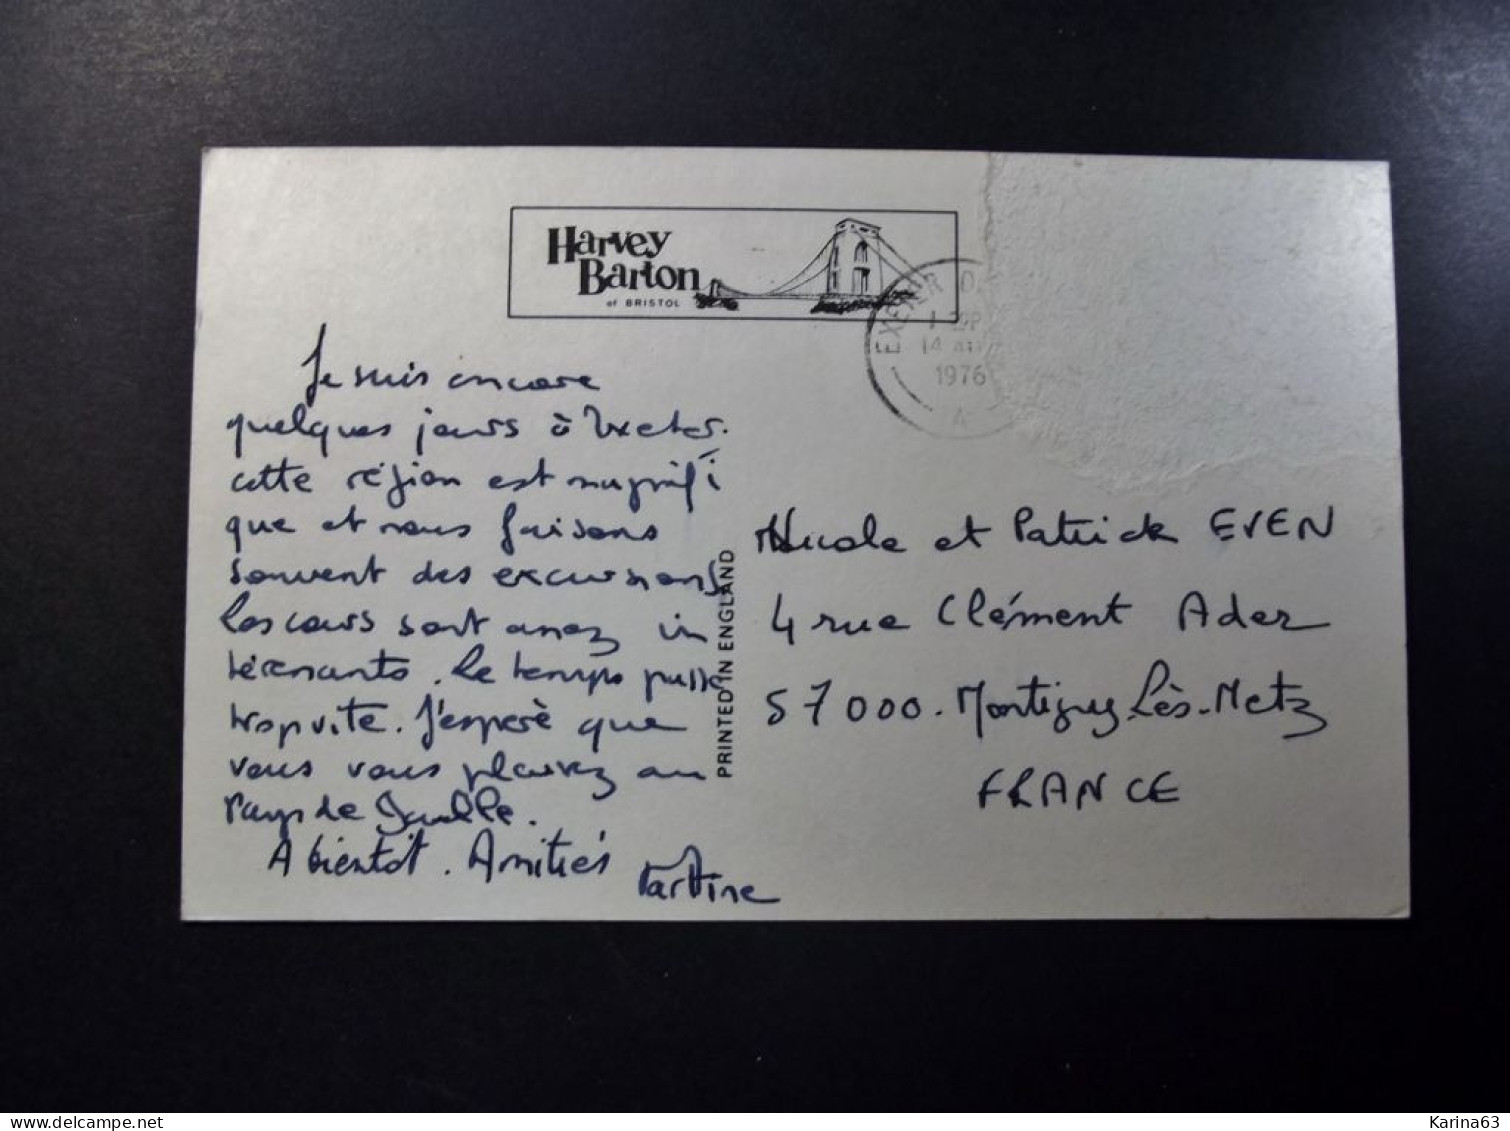 Harvey
Barton
of BRISTOL
EXETER D
1 PM
14
1976
A
Je suis encore
quelques jours à Exeter.
cette région est magnifi
que et nous faisons
souvent des excursions
les cours sont assez in
téressants. Le temps passe
trop vite. J'espère que
vous vous plaisez au
Pays de Gaulle.
A bientôt. Amitiés
Martine
PRINTED IN ENGLAND
Nicole et Patrick EVEN
4 rue Clément Ader
57000. Montigny-Lès-Metz
FRANCE
Karina63